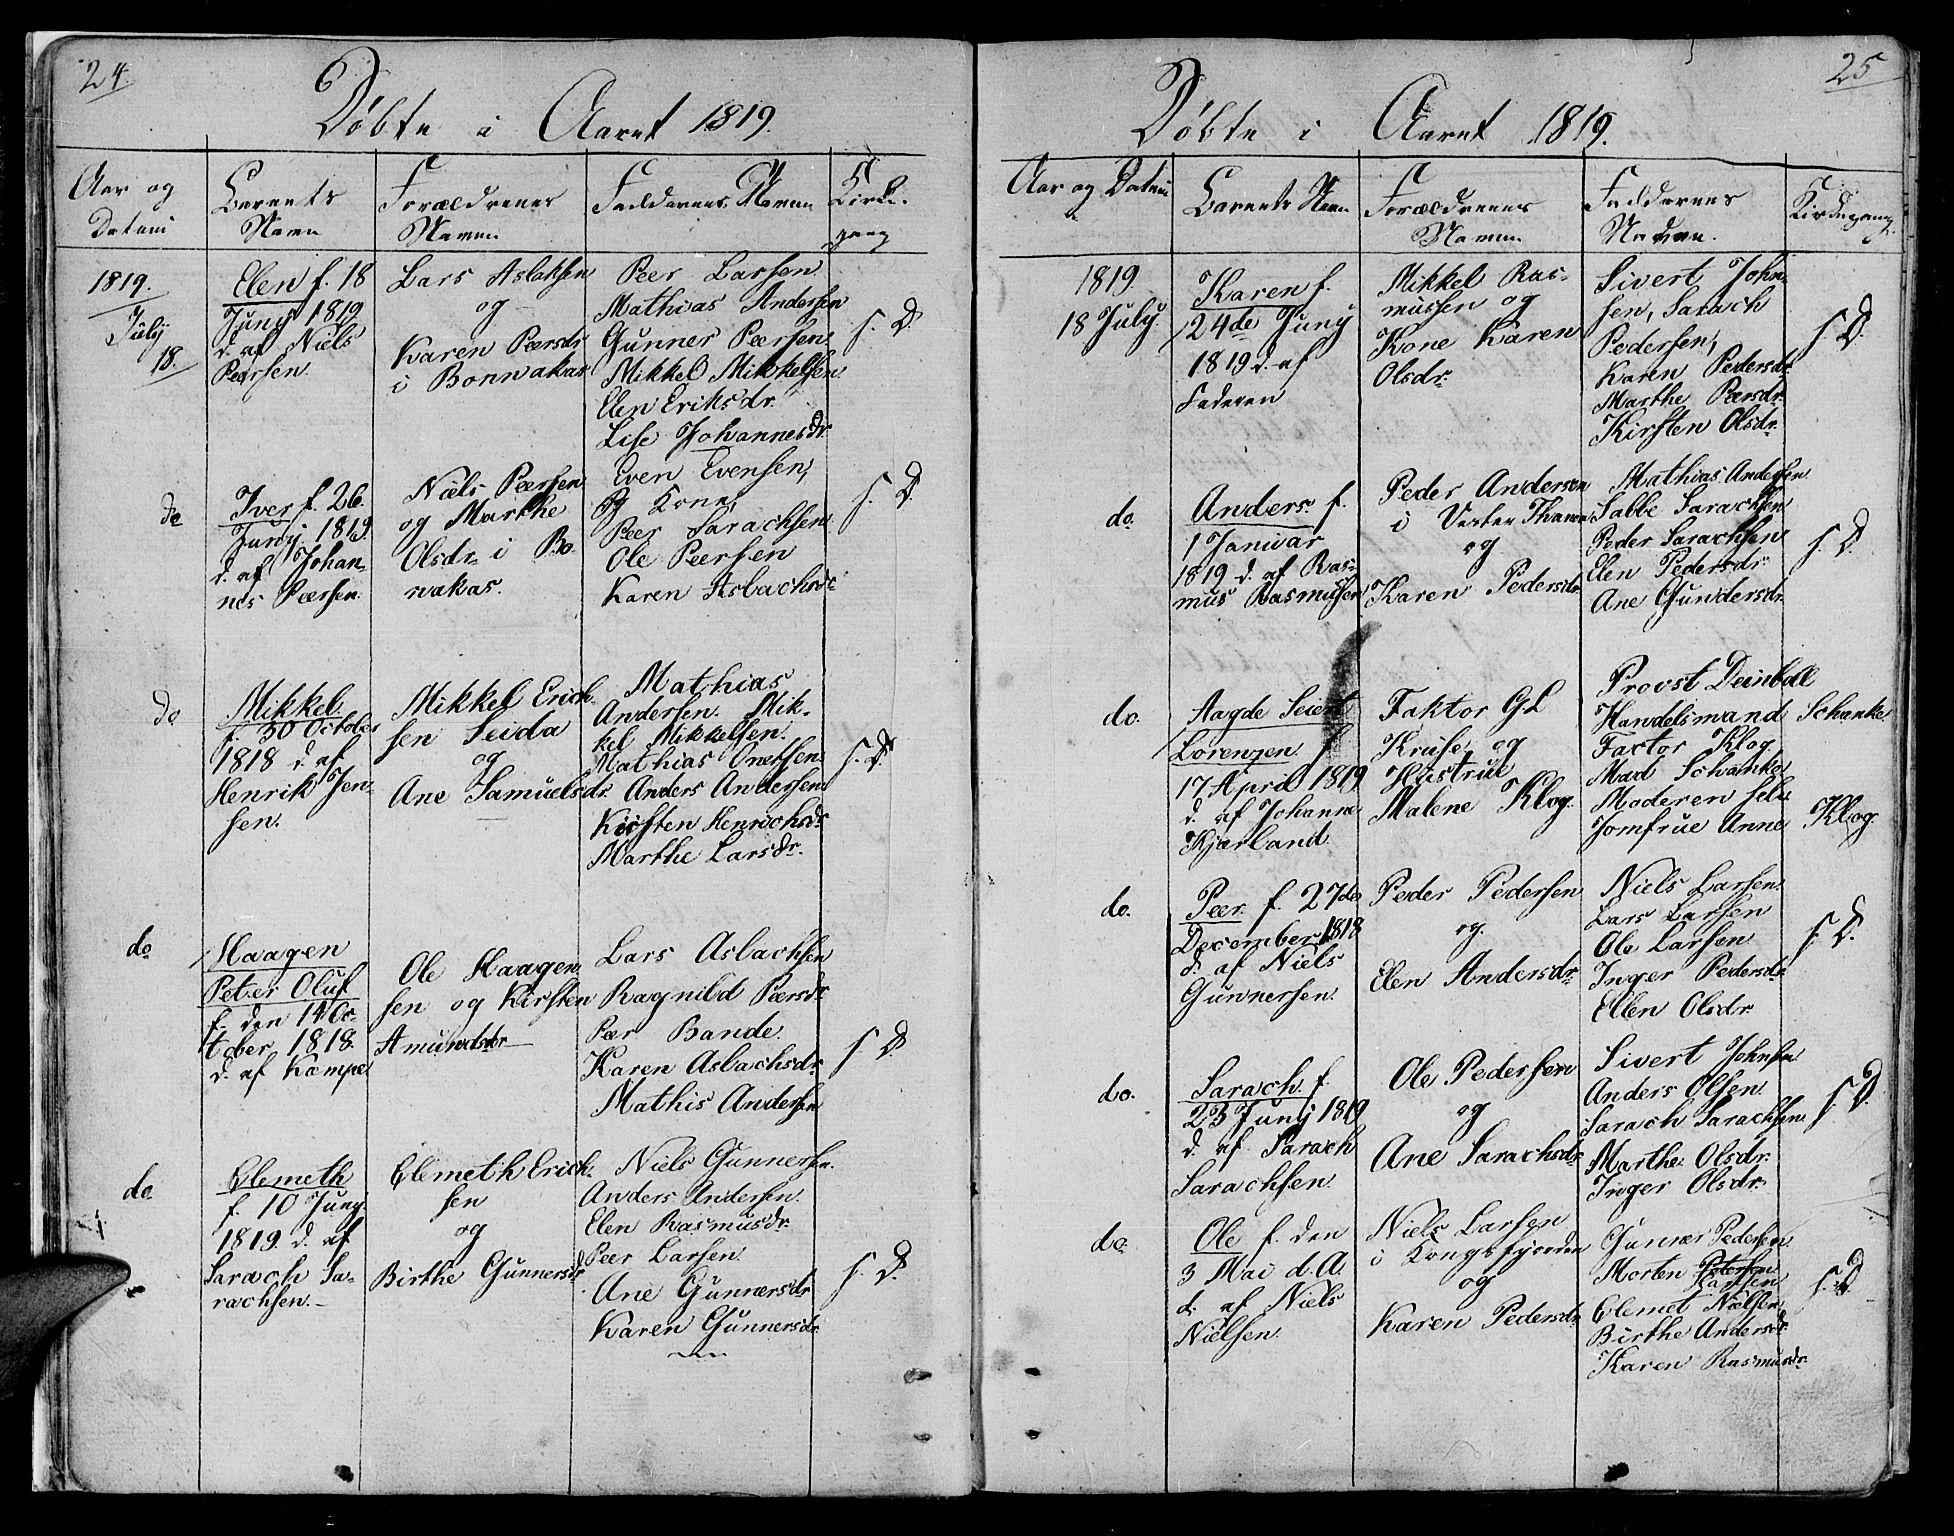 24
Döbte i Aaret 1819.
Aar og
Datum
Barnets
Navn
Forældrenes
Navne
Faddernes Navne
Kirke-
gang
1819.
July
18.
Elen f. 18
Junij 1819
d. af Niels
Peersen.
Lars Aslaksen
og
Karen Peersdr
i Bonnakas
Peer Larsen
Mathias Andersen
Gunner Peersen
Mikkel Mikkelsen
Elen Eriksdr.
Lise Johannesdr
s. D.
do
Iver f. 26
Junij 1819.
d. af Johan-
nes Peersen.
Niels Peersen
og Marthe
Olsdr i Bo-
nakas.
Even Evensen,
og Kone,
Peer Sarachsen
Ole Peersen
Karen Asbachsdr
s. D.
do
Mikkel.
f. 30 October
1818 d. af
Henrik Jen-
sen.
Mikkel Erich-
sen Seida
og
Ane Samuelsdr.
Mathias
Andersen. Mik-
kel Mikkelsen.
Mathias Onetsen.
Anders Andersen
Kirsten Henrichsdr
Marthe Larsdr.
s. D.
do
Haagen
Peter Oluf
f. den 14 Oc-
tober 1818.
d. af Kampe
Ole Haagen-
sen og Kirsten
Amundsdr
Lars Asbachsen
Ragnild Peersdr
Peer Bande.
Karen Asbachsdr
Mathis Andersen
s. D.
do
Clemeth
f. 10 Junij.
1819. d. af
Sarach Sa-
rachsen.
Clemeth Erich-
sen
og
Birthe Gunnersdr
Niels Gunnersen.
Anders Andersen.
Elen Rasmusdr.
Peer Larsen.
Ane Gunnersdr
Karen Gunnersdr
s. D.
25
Döbte i Aaret 1819.
Aar og Datum
Barnets Navn
Forældrenes
Navne
Faddernes
Navne.
Kirkegang.
1819
18 July.
Karen f.
24de Junij
1819 d. af
Faderen
Mikkel Ras-
mussen og
Kone Karen
Olsdr.
Sivert John-
sen, Sarach
Pedersen,
Karen Pedersdr
Marthe Peersdr.
Kirsten Olsdr.
s. D.
do.
Anders. f.
1 Januar
1819 d. af Ras-
mus Rasmussen
Peder Andersen
i Vester Thanen
og
Karen Pedersdr
Mathias Andersen
Sabbe Sarachsen
Peder Sarachsen
Elen Pedersdr.
Ane Gundersdr.
s. D.
do.
Aagde Seiert
Lorenzen. f.
17 April 1819
d. af Johanne
Kjærland.
Faktor G L
Kruse og
Hustrue
Malene Klog.
Provst Deinboll
Handelsmand Schanke
Factor Klog
Mad Schanke
Moderen selv
Jomfrue Anne Klog.
do.
Peer. f. 27de
December 1818
d. af Niels
Gunnersen.
Peder Pedersen
og.
Elen Andersdr.
Niels Larsen.
Lars Larsen
Ole Larsen
Inger Pedersdr
Ellen Olsdr.
s. D.
do.
Sarach. f.
23 Junij 1819
d. af Sarach
Sarachsen
Ole Pedersen
og
Ane Sarachsdr
Sivert Johnsen
Anders Olsen.
Sarach Sarachsen
Marthe Olsdr.
Inger Olsdr.
s. D.
do
Ole f. den
3 Mai d. A.
d. af Niels
Nielsen.
Niels Larsen
i Kongsfjorden
og
Karen Pedersdr.
Gunner Pedersen
Morten Petersen
Larsen
Clemet Nielsen
Birthe Andersdr
Karen Rasmusdr.
s. D.